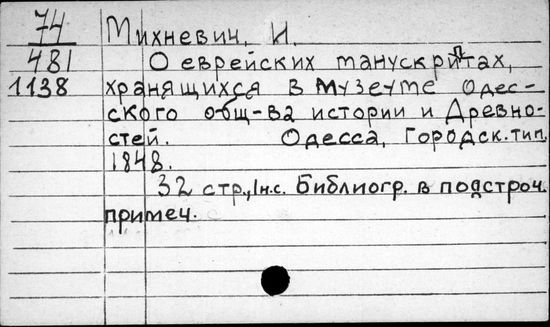 74 Михневич, И.
481 О еврейских манускриптах,
1138 хранящихся в музеуме Одес-
ского общ-ва истории и Древно-
стей. Одесса, Городск. тип,
1848.
32 стр., 1н.с. Библиогр. в подстроч.
примеч.